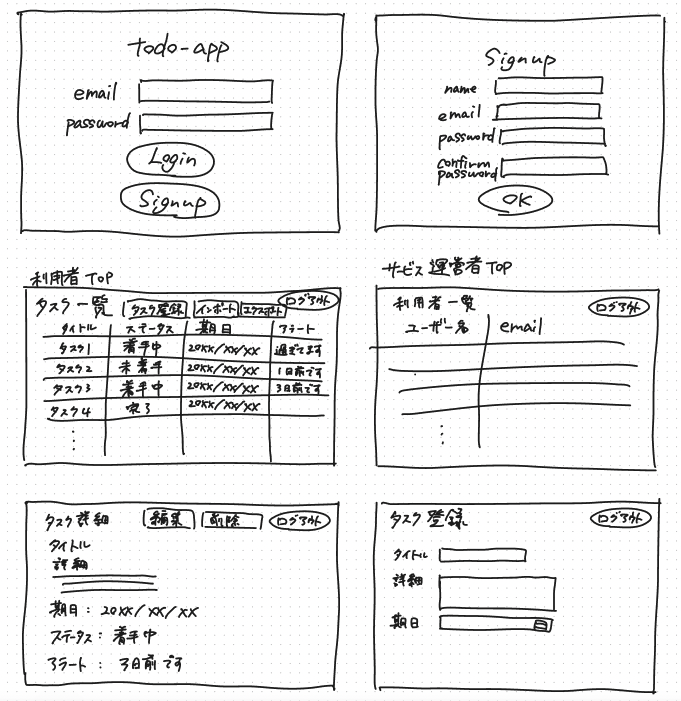 todo-app
email
password
Login
Signup
Signup
name
email
password
confirm
password
OK
利用者 TOP
タスク一覧 タスク登録 インポート エクスポート ログアウト
タイトル ステータス 期日 アラート
タスク1 着手中 20XX/XX/XX 過ぎてます
タスク2 未着手 20XX/XX/XX 1日前です
タスク3 着手中 20XX/XX/XX 3日前です
タスク4 完了 20XX/XX/XX
サービス運営者 TOP
利用者一覧 ログアウト
ユーザー名 email
タスク詳細 編集 削除 ログアウト
タイトル
詳細
期日: 20XX/XX/XX
ステータス: 着手中
アラート: 3日前です
タスク登録 ログアウト
タイトル
詳細
期日